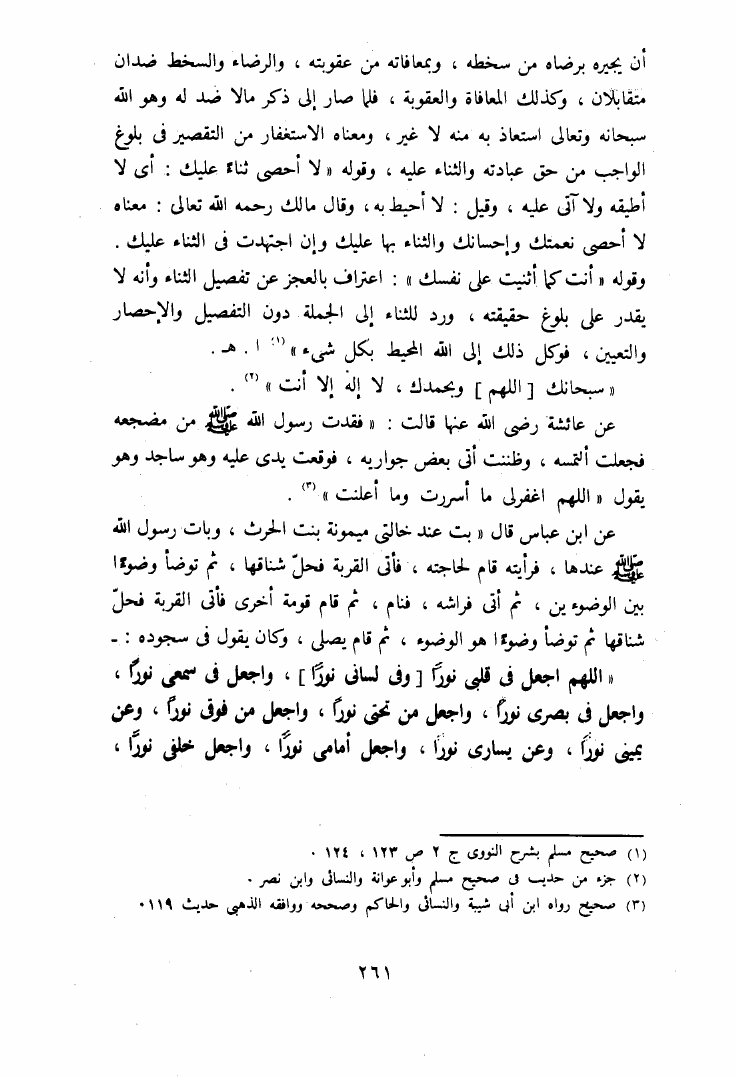 أن يجيره برضاه من سخطه ، وبمعافاته من عقوبته ، والرضاء والسخط ضدان
متقابلان ، وكذلك المعافاة والعقوبة ، فلما صار إلى ذكر مالا ضد له وهو الله
سبحانه وتعالى استعاذ به منه لا غير ، ومعناه الاستغفار من التقصير فى بلوغ
الواجب من حق عبادته والثناء عليه ، وقوله « لا أحصى ثناءً عليك : أى لا
أطيقه ولا آتى عليه ، وقيل : لا أحيط به ، وقال مالك رحمه الله تعالى : معناه
لا أحصى نعمتك وإحسانك والثناء بها عليك وإن اجتهدت فى الثناء عليك .
وقوله « أنت كما أثنيت على نفسك » : اعتراف بالعجز عن تفصيل الثناء وأنه لا
يقدر على بلوغ حقيقته ، ورد للثناء إلى الجملة دون التفصيل والإحصار
والتعيين ، فوكل ذلك إلى الله المحيط بكل شىء » (١) ا . هـ .
« سبحانك [ اللهم ] وبحمدك ، لا إله إلا أنت » (٢) .
عن عائشة رضى الله عنها قالت : « فقدت رسول الله ﷺ من مضجعه
فجعلت ألتمسه ، وظننت أتى بعض جواريه ، فوقعت يدى عليه وهو ساجد وهو
يقول « اللهم اغفرلى ما أسررت وما أعلنت » (٣) .
عن ابن عباس قال « بت عند خالتى ميمونة بنت الحرث ، وبات رسول الله
ﷺ عندها ، فرأيته قام لحاجته ، فأتى القربة فحلّ شناقها ، ثم توضأ وضوءًا
بين الوضوءين ، ثم أتى فراشه ، فنام ، ثم قام قومة أخرى فأتى القربة فحلّ
شناقها ثم توضأ وضوءًا هو الوضوء ، ثم قام يصلى ، وكان يقول فى سجوده : ـ
« اللهم اجعل فى قلبى نورًا [ وفى لسانى نورًا ] ، واجعل فى سمعى نورًا ،
واجعل فى بصرى نورًا ، واجعل من تحتى نورًا ، واجعل من فوقى نورًا ، وعن
يمينى نورًا ، وعن يسارى نورًا ، واجعل أمامى نورًا ، واجعل خلفى نورًا ،
(١) صحيح مسلم بشرح النووى ج ٢ ص ١٢٣ ، ١٢٤ .
(٢) جزء من حديث فى صحيح مسلم وأبو عوانة والنسائى وابن نصر .
(٣) صحيح رواه ابن أبى شيبة والنسائى والحاكم وصححه ووافقه الذهبى حديث ١١٩.
٢٦١